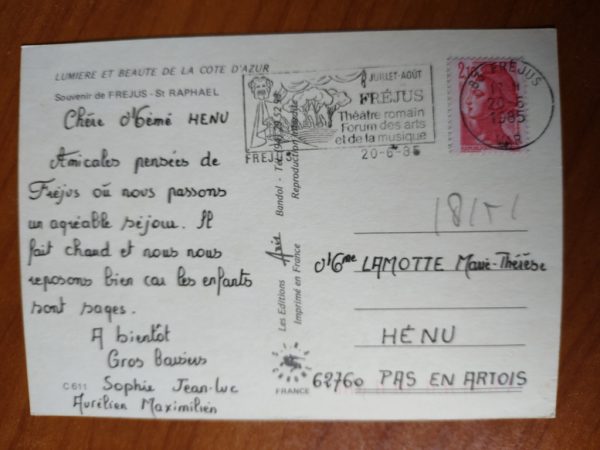 LUMIERE ET BEAUTE DE LA COTE D'AZUR
Souvenir de FREJUS - St RAPHAEL
Chère Mémé HENU
Amicales pensées de
Fréjus où nous passons
un agréable séjour. Il
fait chaud et nous nous
reposons bien car les enfants
sont sages.
A bientôt
Gros Baisers
Sophie Jean-Luc
Aurélien Maximilien
C 611
JUILLET-AOÛT
FRÉJUS
Théâtre romain
Forum des arts
et de la musique
20-6-85
FREJUS
2,10
83 FREJUS
20-6
1985
Les Editions Aris Bandol - Tél. (94) 29.52.98
Imprimé en France Reproduction interdite
FRANCE
Mme LAMOTTE Marie-Thérèse
HÉNU
62760 PAS EN ARTOIS